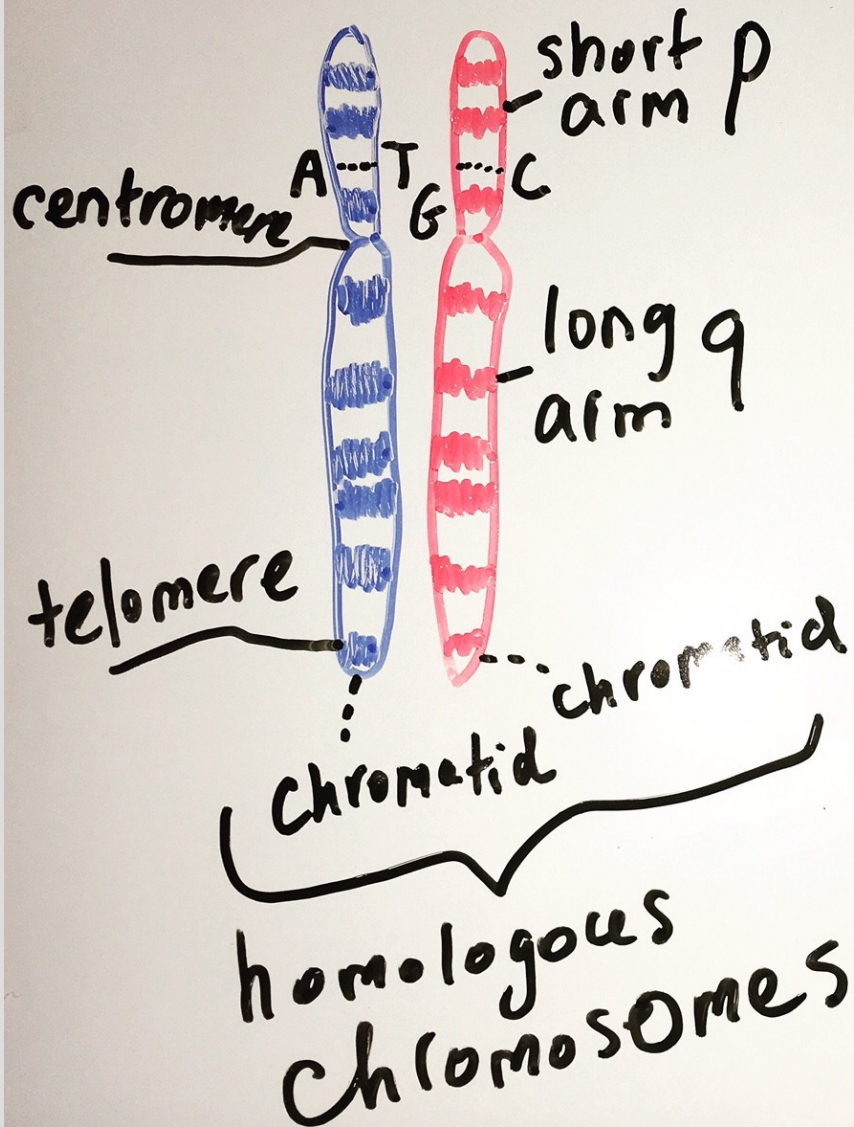 short p
arm
A T
G C
centromere
long q
arm
telomere
chromatid
chromatid
homologous
chromosomes